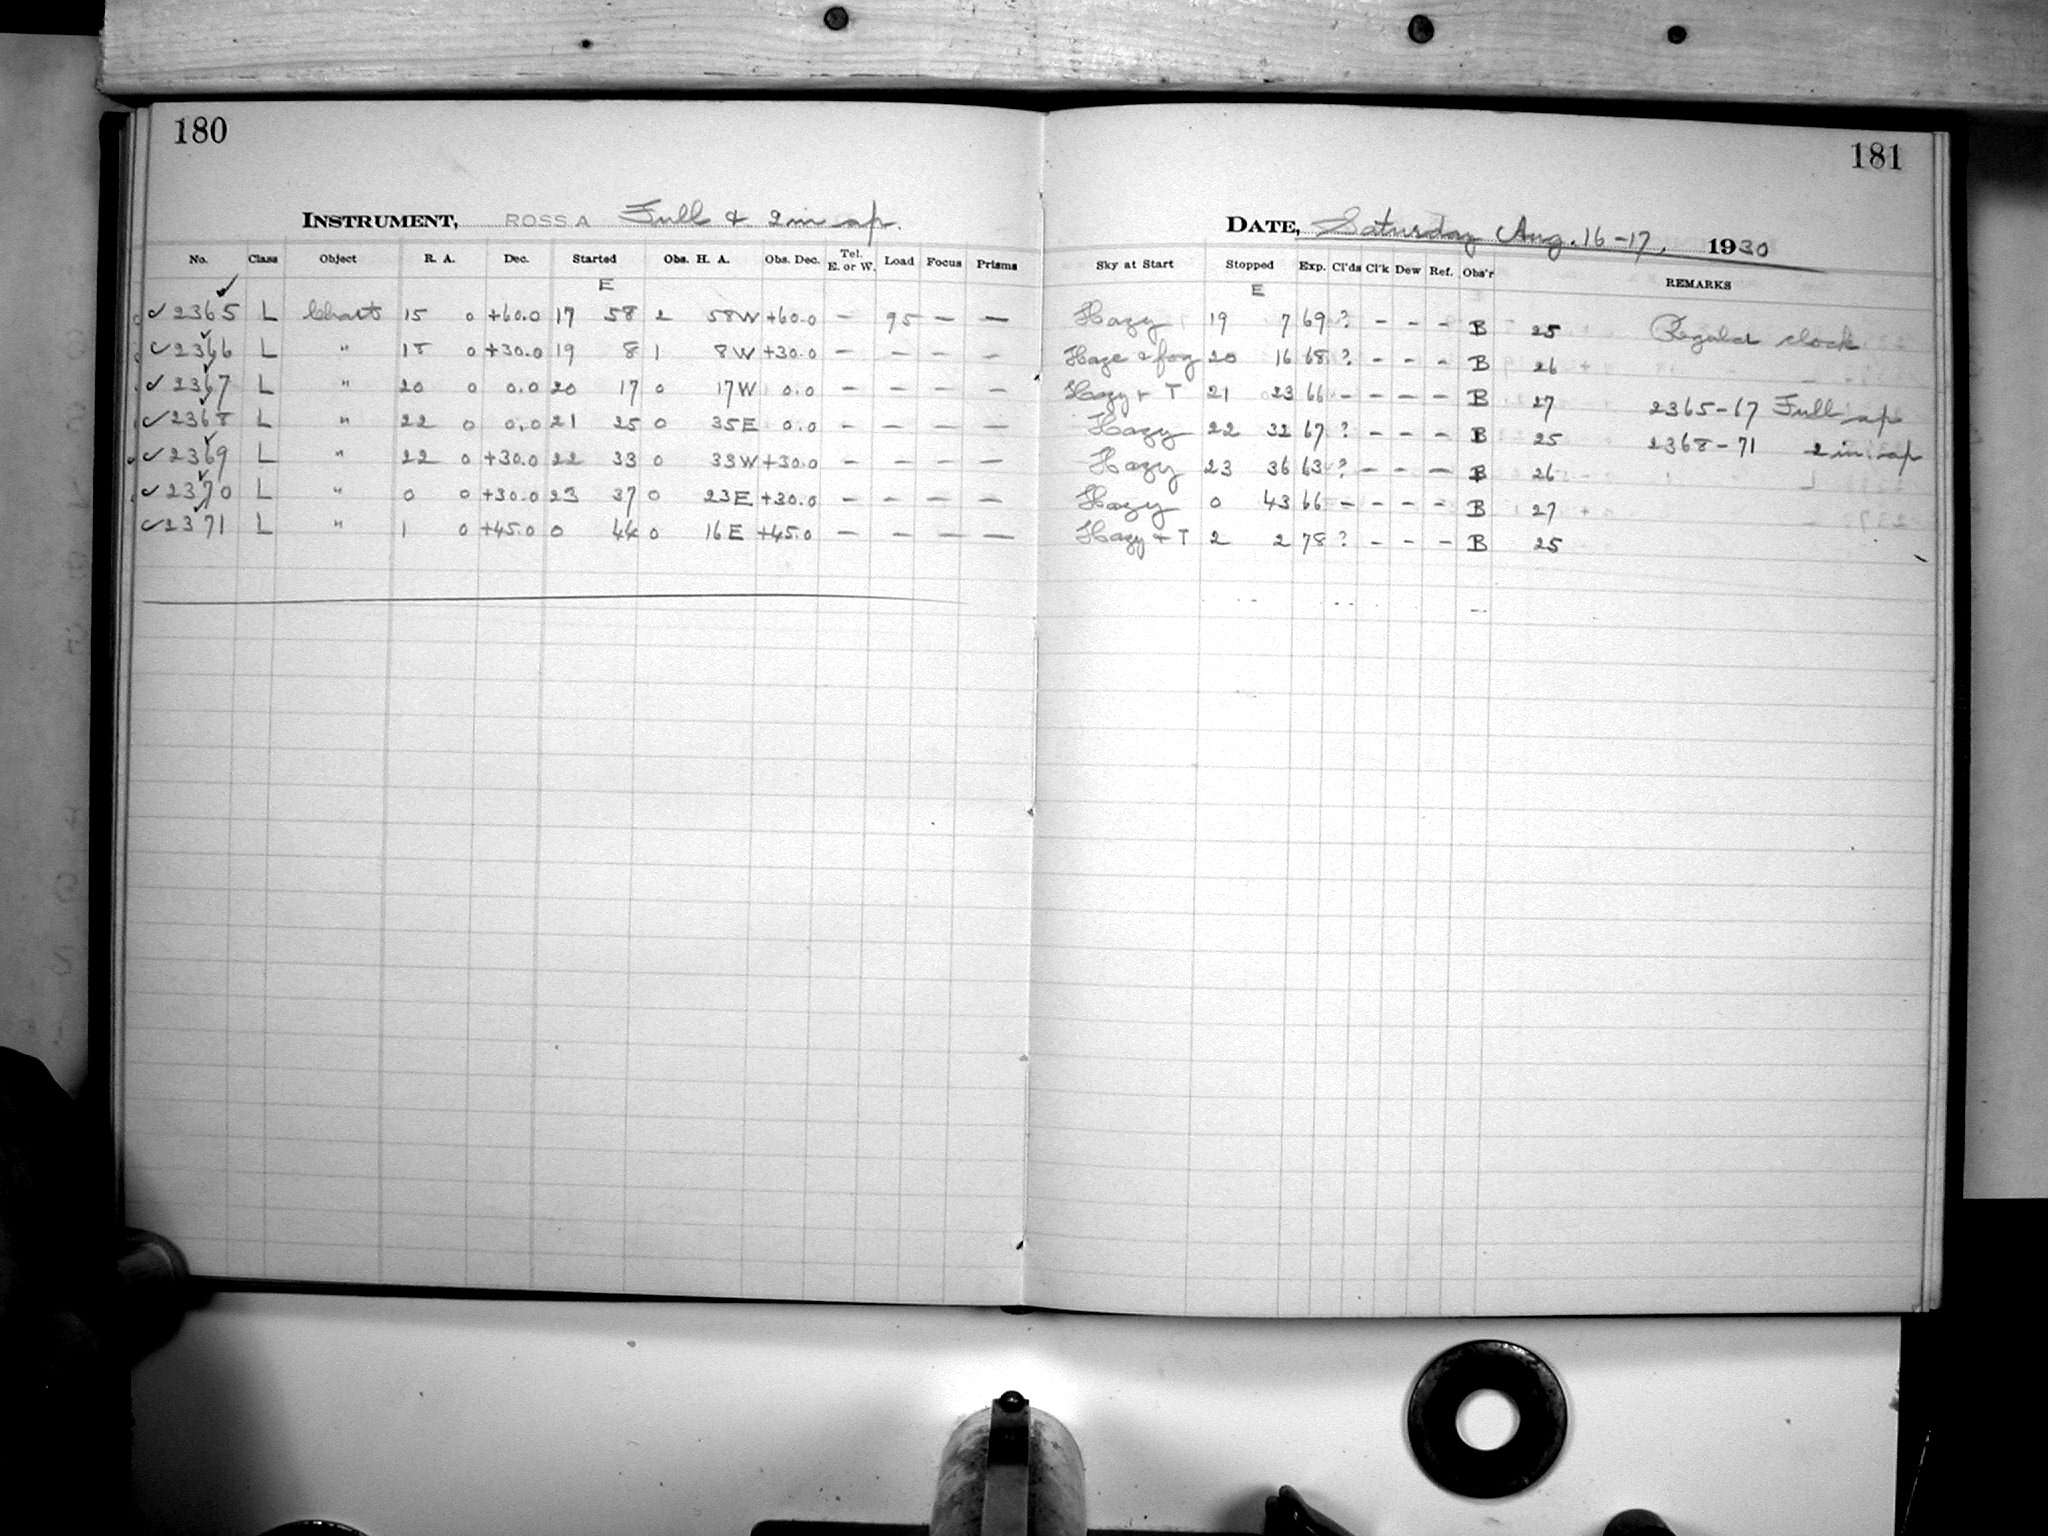 180
181
INSTRUMENT, ROSS A Full & 2 in ap.
DATE, Saturday Aug. 16-17, 1930
No. Class Object R. A. Dec. Started Obs. H. A. Obs. Dec. Tel. E. or W. Load Focus Prisms
Sky at Start Stopped Exp. Cl'ds Cl'k Dew Ref. Obs'r REMARKS
E
E
✓ 2365 L Chart 15 0 +60.0 17 58 2 58W +60.0 - 95 - - Hazy 19 7 69 ? - - - B 25 Regular clock
✓ 2366 L " 18 0 +30.0 19 8 1 8W +30.0 - - - - Haze & fog 20 16 68 ? - - - B 26
✓ 2367 L " 20 0 0.0 20 17 0 17W 0.0 - - - - Hazy + T 21 23 66 - - - - B 27 2365-67 Full ap
✓ 2368 L " 22 0 0.0 21 25 0 35E 0.0 - - - - Hazy 22 32 67 ? - - - B 25 2368-71 2 in. ap
✓ 2369 L " 22 0 +30.0 22 33 0 33W +30.0 - - - - Hazy 23 36 63 ? - - - B 26
✓ 2370 L " 0 0 +30.0 23 37 0 23E +30.0 - - - - Hazy 0 43 66 - - - - B 27
✓ 2371 L " 1 0 +45.0 0 44 0 16E +45.0 - - - - Hazy + T 2 2 78 ? - - - B 25